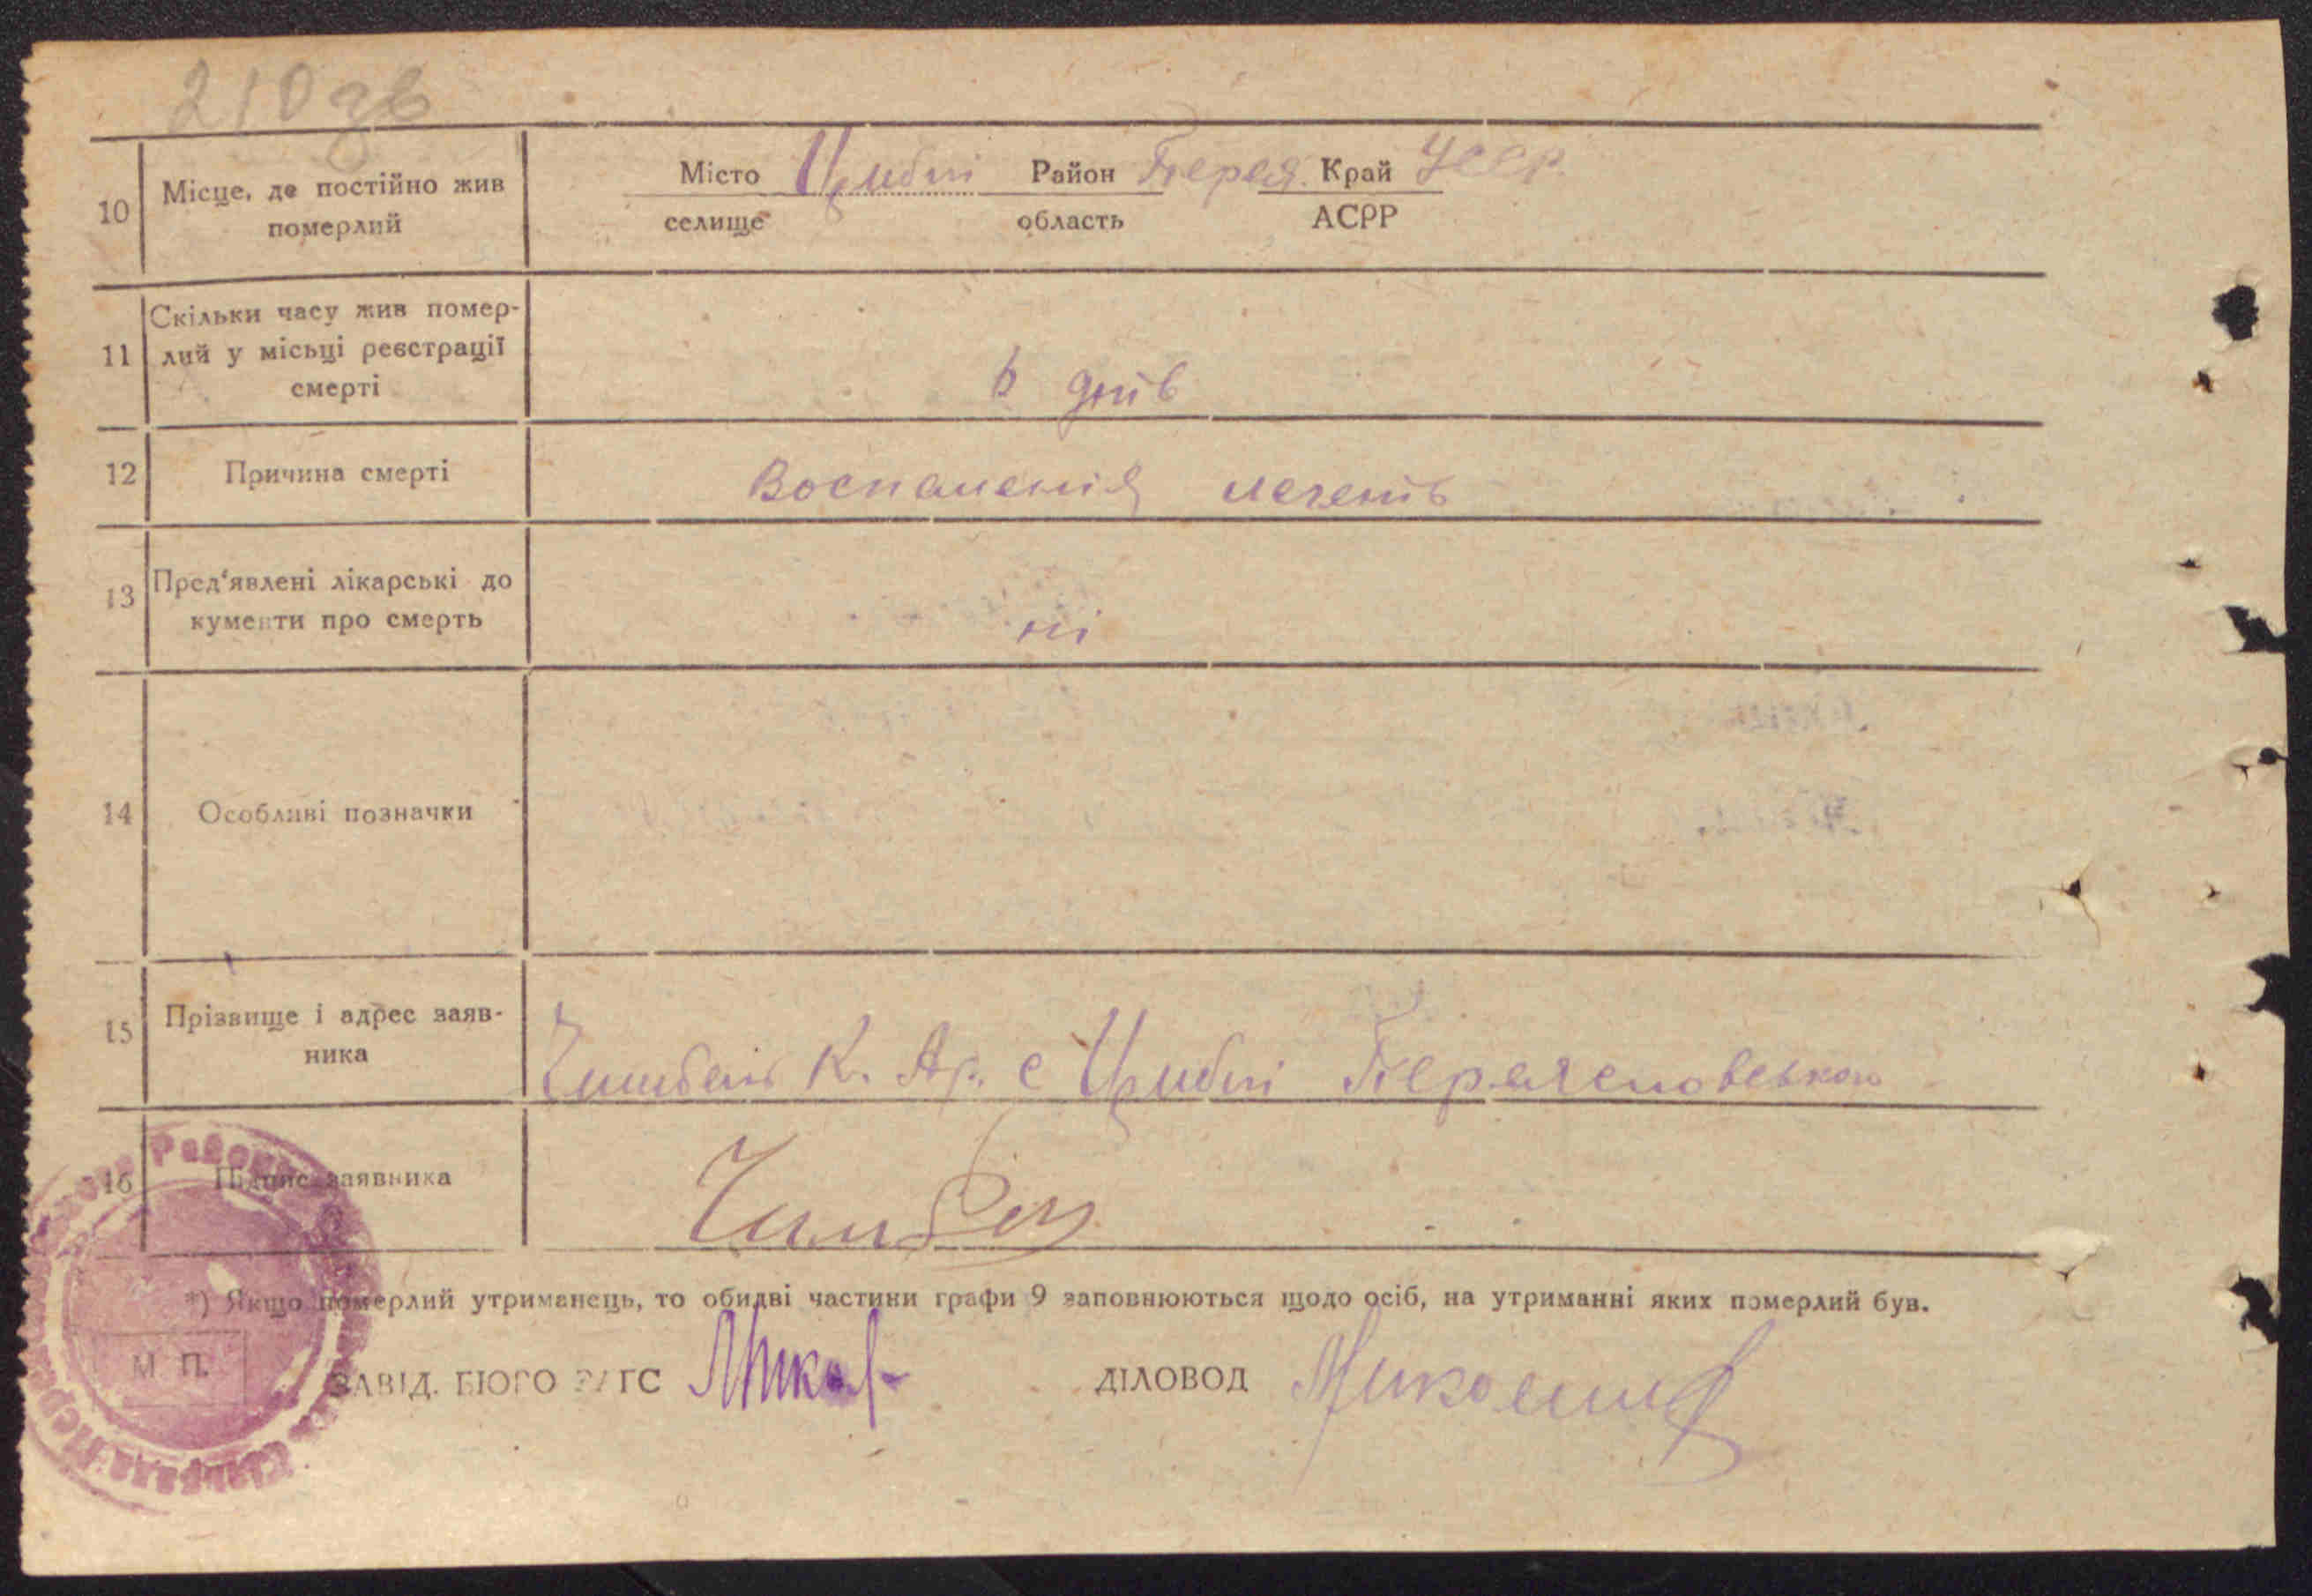 210 зв
10 Місце, де постійно жив померлий
Місто Циблі Район Перея. Край УССР.
селище область АСРР
11 Скільки часу жив помер-
лий у місьці реєстрації
смерті
6 днів
12 Причина смерті Воспаленія легень
13 Пред'явлені лікарські до
кументи про смерть
ні
14 Особливі позначки
15 Прізвище і адрес заяв-
ника
К. Ар. с Циблі Переяславського
16 Підпис заявника
*) Якщо померлий утриманець, то обидві частини графи 9 заповнюються щодо осіб, на утриманні яких померлий був.
М П.
ЗАВІД. БЮРО ЗАГС ДІЛОВОД